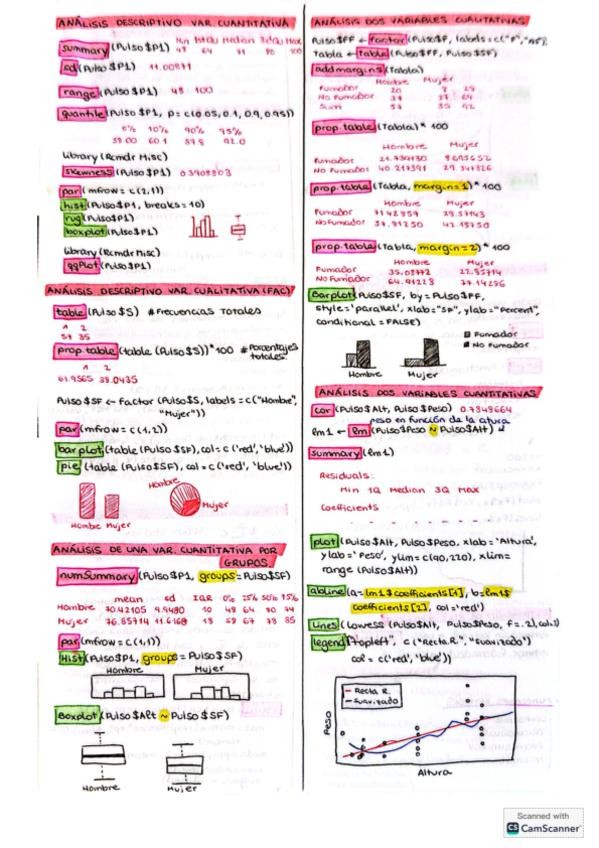 ANÁLISIS DESCRIPTIVO VAR. CUANTITATIVA
Min 1stQu Median 3rdQu Max
summary (Pulso$P1) 48 64 71 80 100
sd (Pulso$P1) 11.00871
range (Pulso$P1) 48 100
quantile (Pulso$P1, p = c(0.05, 0.1, 0.9, 0.95))
5% 10% 90% 95%
60.1 92.0
library (RcmdrMisc)
skewness (Pulso$P1)
par (mfrow = c(2,1))
hist (Pulso$P1, breaks=10)
rug (Pulso$P1)
boxplot (Pulso$P1)
library (RcmdrMisc)
qqPlot (Pulso$P1)
ANÁLISIS DESCRIPTIVO VAR. CUALITATIVA (FAC)
table (Pulso$S) #Frecuencias Totales
1 2
57 35
prop.table (table (Pulso$S))*100 #Porcentajes totales
1 2
61.9565 38.0435
Pulso$SF <- factor (Pulso$S, labels = c("Hombre",
"Mujer"))
par (mfrow = c(1,2))
barplot (table (Pulso$SF), col = c('red','blue'))
pie (table (Pulso$SF), col = c('red', 'blue'))
Hombre
Mujer
Hombre Mujer
ANÁLISIS DE UNA VAR. CUANTITATIVA POR
GRUPOS
numSummary (Pulso$P1, groups = Pulso$SF)
mean sd IQR 0% 25% 50% 75%
Hombre 70.42105 9.9480 10 48 64 70 74
Mujer 76.85714 11.6168 18 58 67 78 85
par (mfrow = c(1,1))
Hist (Pulso$P1, groups = Pulso$SF)
Hombre Mujer
Boxplot (Pulso$Alt ~ Pulso$SF)
Hombre Mujer
ANÁLISIS DOS VARIABLES CUALITATIVAS
Pulso$FF <- factor (Pulso$F, labels = c("F", "NF"))
Tabla <- table (Pulso$FF, Pulso$SF)
addmargins (Tabla)
Hombre Mujer
Fumador 20 8 28
No Fumador 37 27 64
Sum 57 35 92
prop.table (Tabla) * 100
Hombre Mujer
Fumador 21.739130 8.695652
No Fumador 40.217391 29.347826
prop.table (Tabla, margin = 1) * 100
Hombre Mujer
Fumador 71.42857 28.57143
No Fumador 57.81250 42.18750
prop.table (Tabla, margin = 2) * 100
Hombre Mujer
Fumador 35.08772 22.85714
No Fumador 64.91228 77.14286
Barplot (Pulso$SF, by = Pulso$FF,
style = 'parallel', xlab = "SF", ylab = "Percent",
conditional = FALSE)
Fumador
No Fumador
Hombre Mujer
ANÁLISIS DOS VARIABLES CUANTITATIVAS
cor (Pulso$Alt, Pulso$Peso) 0.7848664
peso en función de la altura
lm1 <- lm (Pulso$Peso ~ Pulso$Alt)
summary (lm1)
Residuals:
Min 1Q Median 3Q Max
Coefficients
plot (Pulso$Alt, Pulso$Peso, xlab = 'Altura',
ylab = 'Peso', ylim = c(90,220), xlim=
range (Pulso$Alt))
abline (a = lm1$coefficients[1], b = lm1$
coefficients[2], col = 'red')
Lines (lowess (Pulso$Alt, Pulso$Peso, f = .2), col
legend ("topleft", c("Recta R.", "Suavizado"),
col = c('red', 'blue'))
Recta R.
Suavizado
Peso
Altura
Scanned with
CS CamScanner